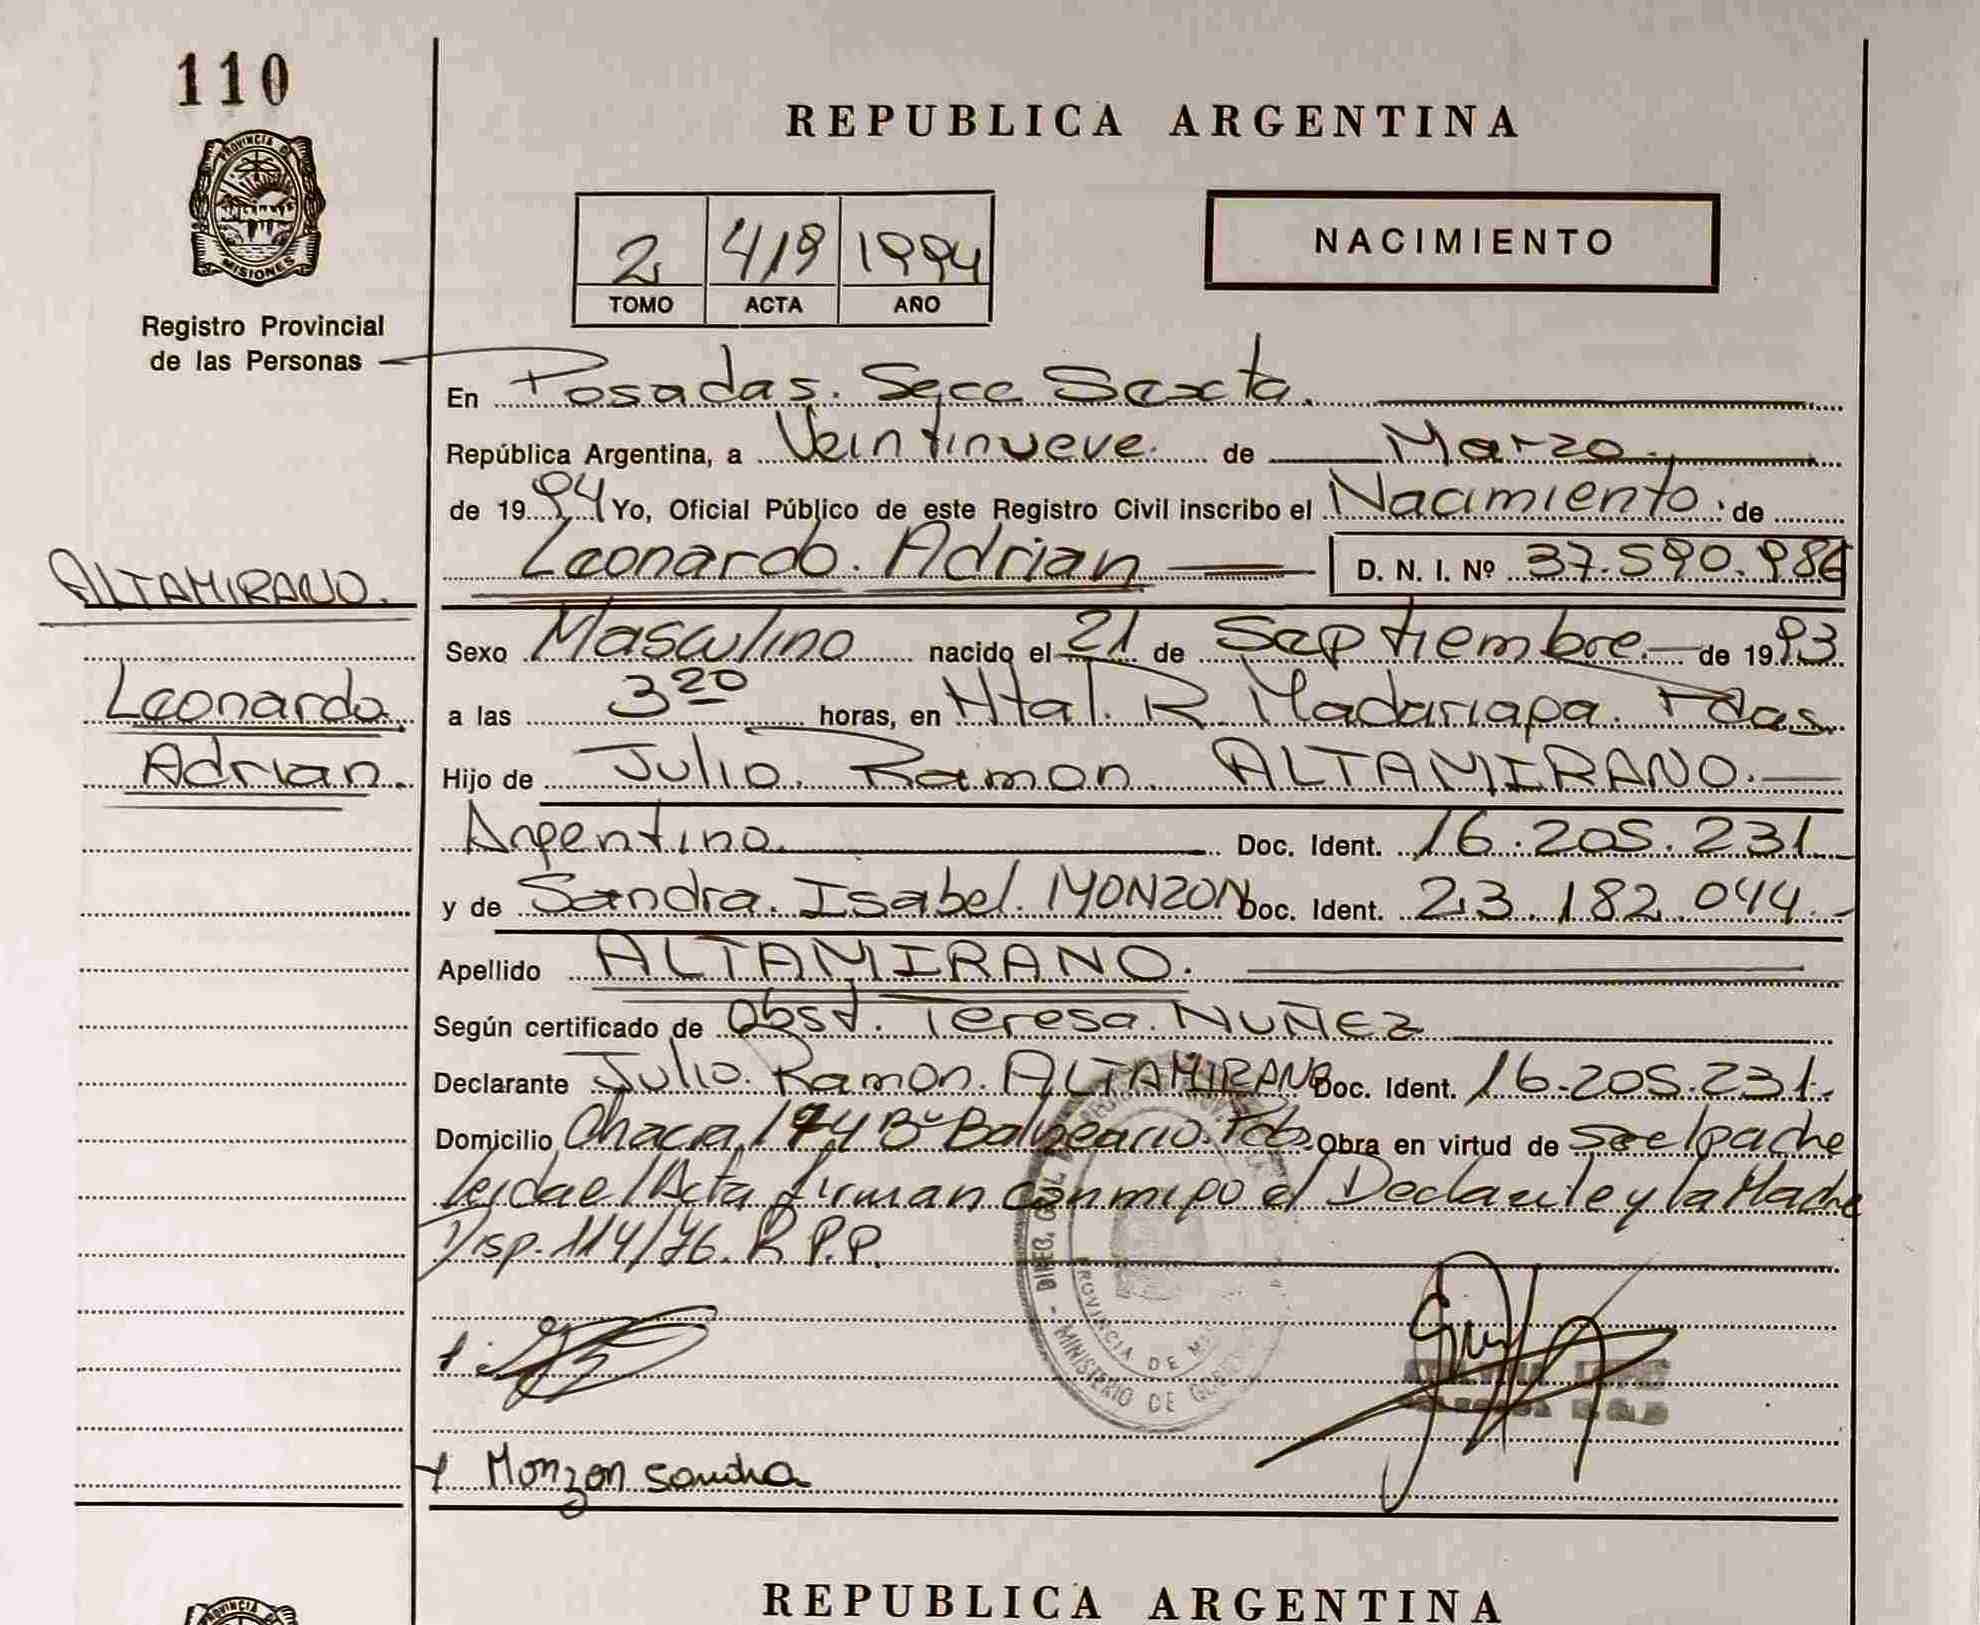 110
PROVINCIA DE
MISIONES
Registro Provincial
de las Personas
ALTAMIRANO.
Leonardo
Adrian.
REPUBLICA ARGENTINA
2 419 1994
TOMO ACTA AÑO
NACIMIENTO
En Posadas. Secc Sexta.
República Argentina, a Veintinueve. de Marzo.
de 1994 Yo, Oficial Público de este Registro Civil inscribo el Nacimiento. de
Leonardo. Adrian D. N. I. Nº 37.590.986
Sexo Masculino nacido el 21 de Septiembre. de 1993
a las 3 20 horas, en Htal. R. Madariaga. Pdas.
Hijo de Julio. Ramon. ALTAMIRANO.
Argentino. Doc. Ident. 16.205.231
y de Sandra. Isabel. MONZON Doc. Ident. 23.182.044
Apellido ALTAMIRANO.
Según certificado de Obst. Teresa. NUÑEZ
Declarante Julio. Ramon. ALTAMIRANO Doc. Ident. 16.205.231.
Domicilio Chacra 174 Bº Balneario. Obra en virtud de
Leida el Acta firman conmigo el Declarante y la Madre
Disp. 114/76. R.P.P.
DIREC. GRAL
PROVINCIA DE
MINISTERIO DE
Monzon Sandra
REPUBLICA ARGENTINA
PROVINCIA DE